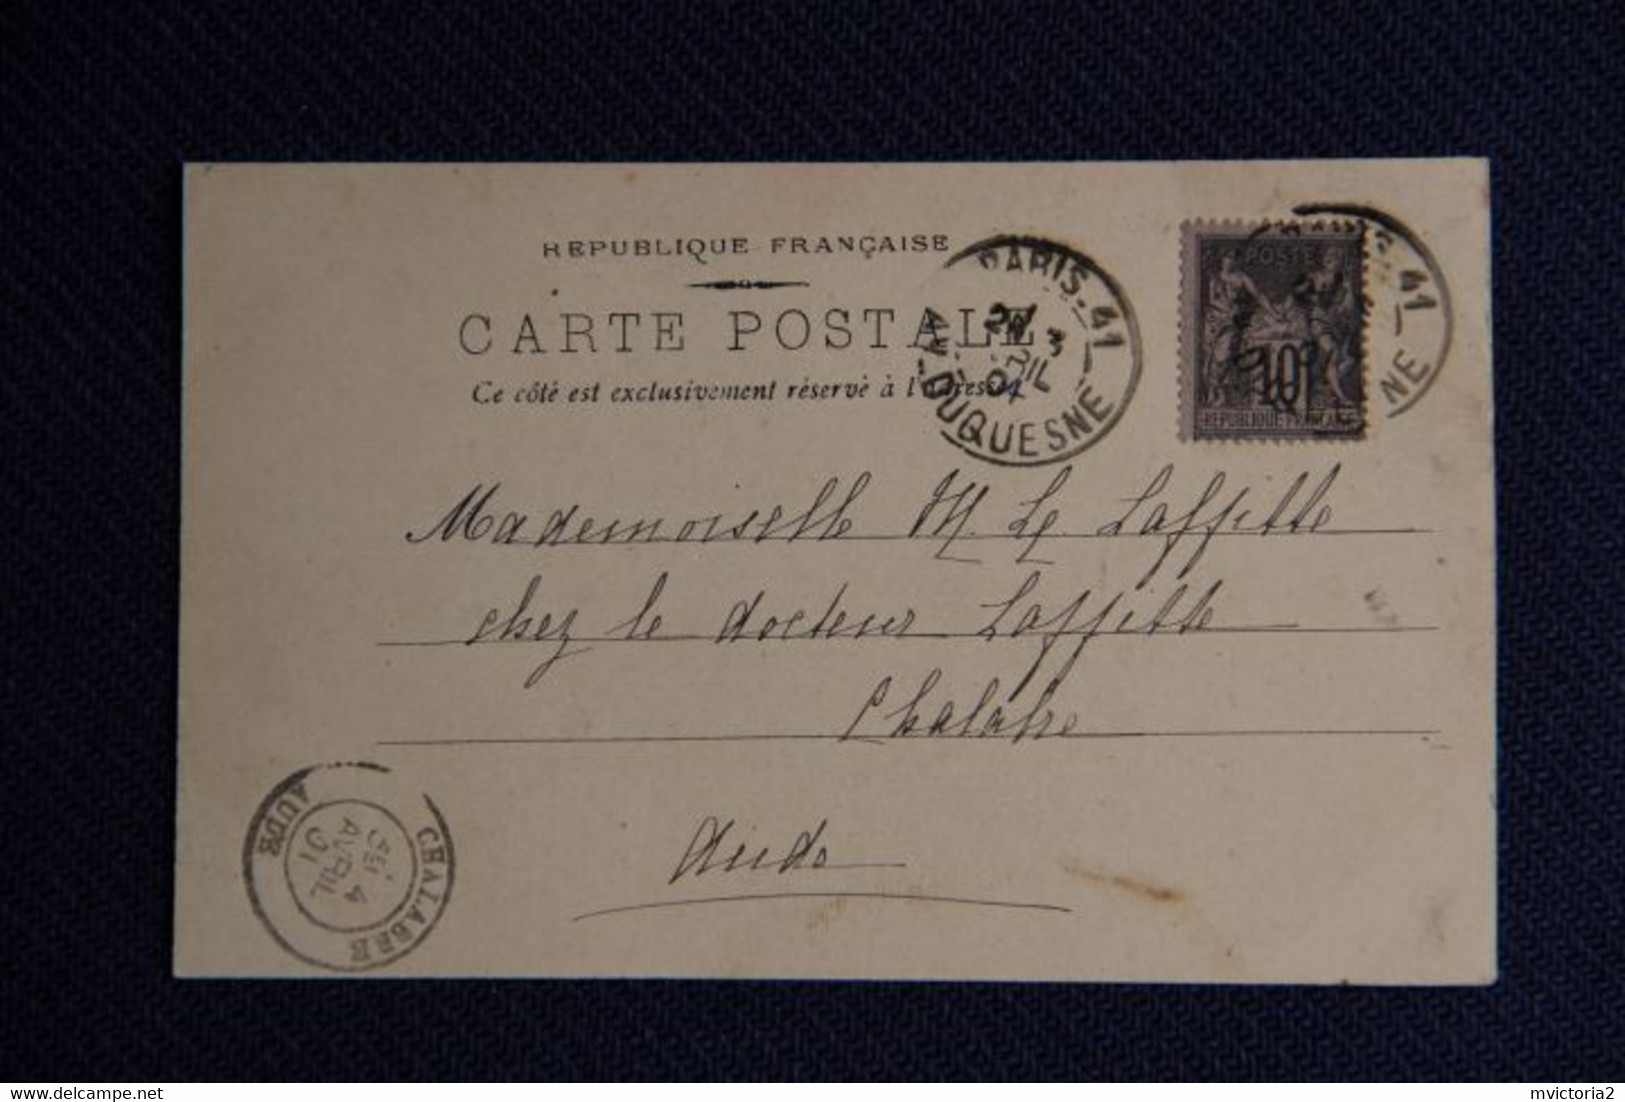 REPUBLIQUE FRANÇAISE
CARTE POSTALE
Ce côté est exclusivement réservé à l'adresse
PARIS-41
3
AVRIL
01
AV. DUQUESNE
POSTES
10
REPUBLIQUE FRANÇAISE
41
NE
Mademoiselle M. L. Laffitte
chez le docteur Laffitte
Chalabre
Aude
CHALABRE
4
AVRIL
01
AUDE
mvictoria2